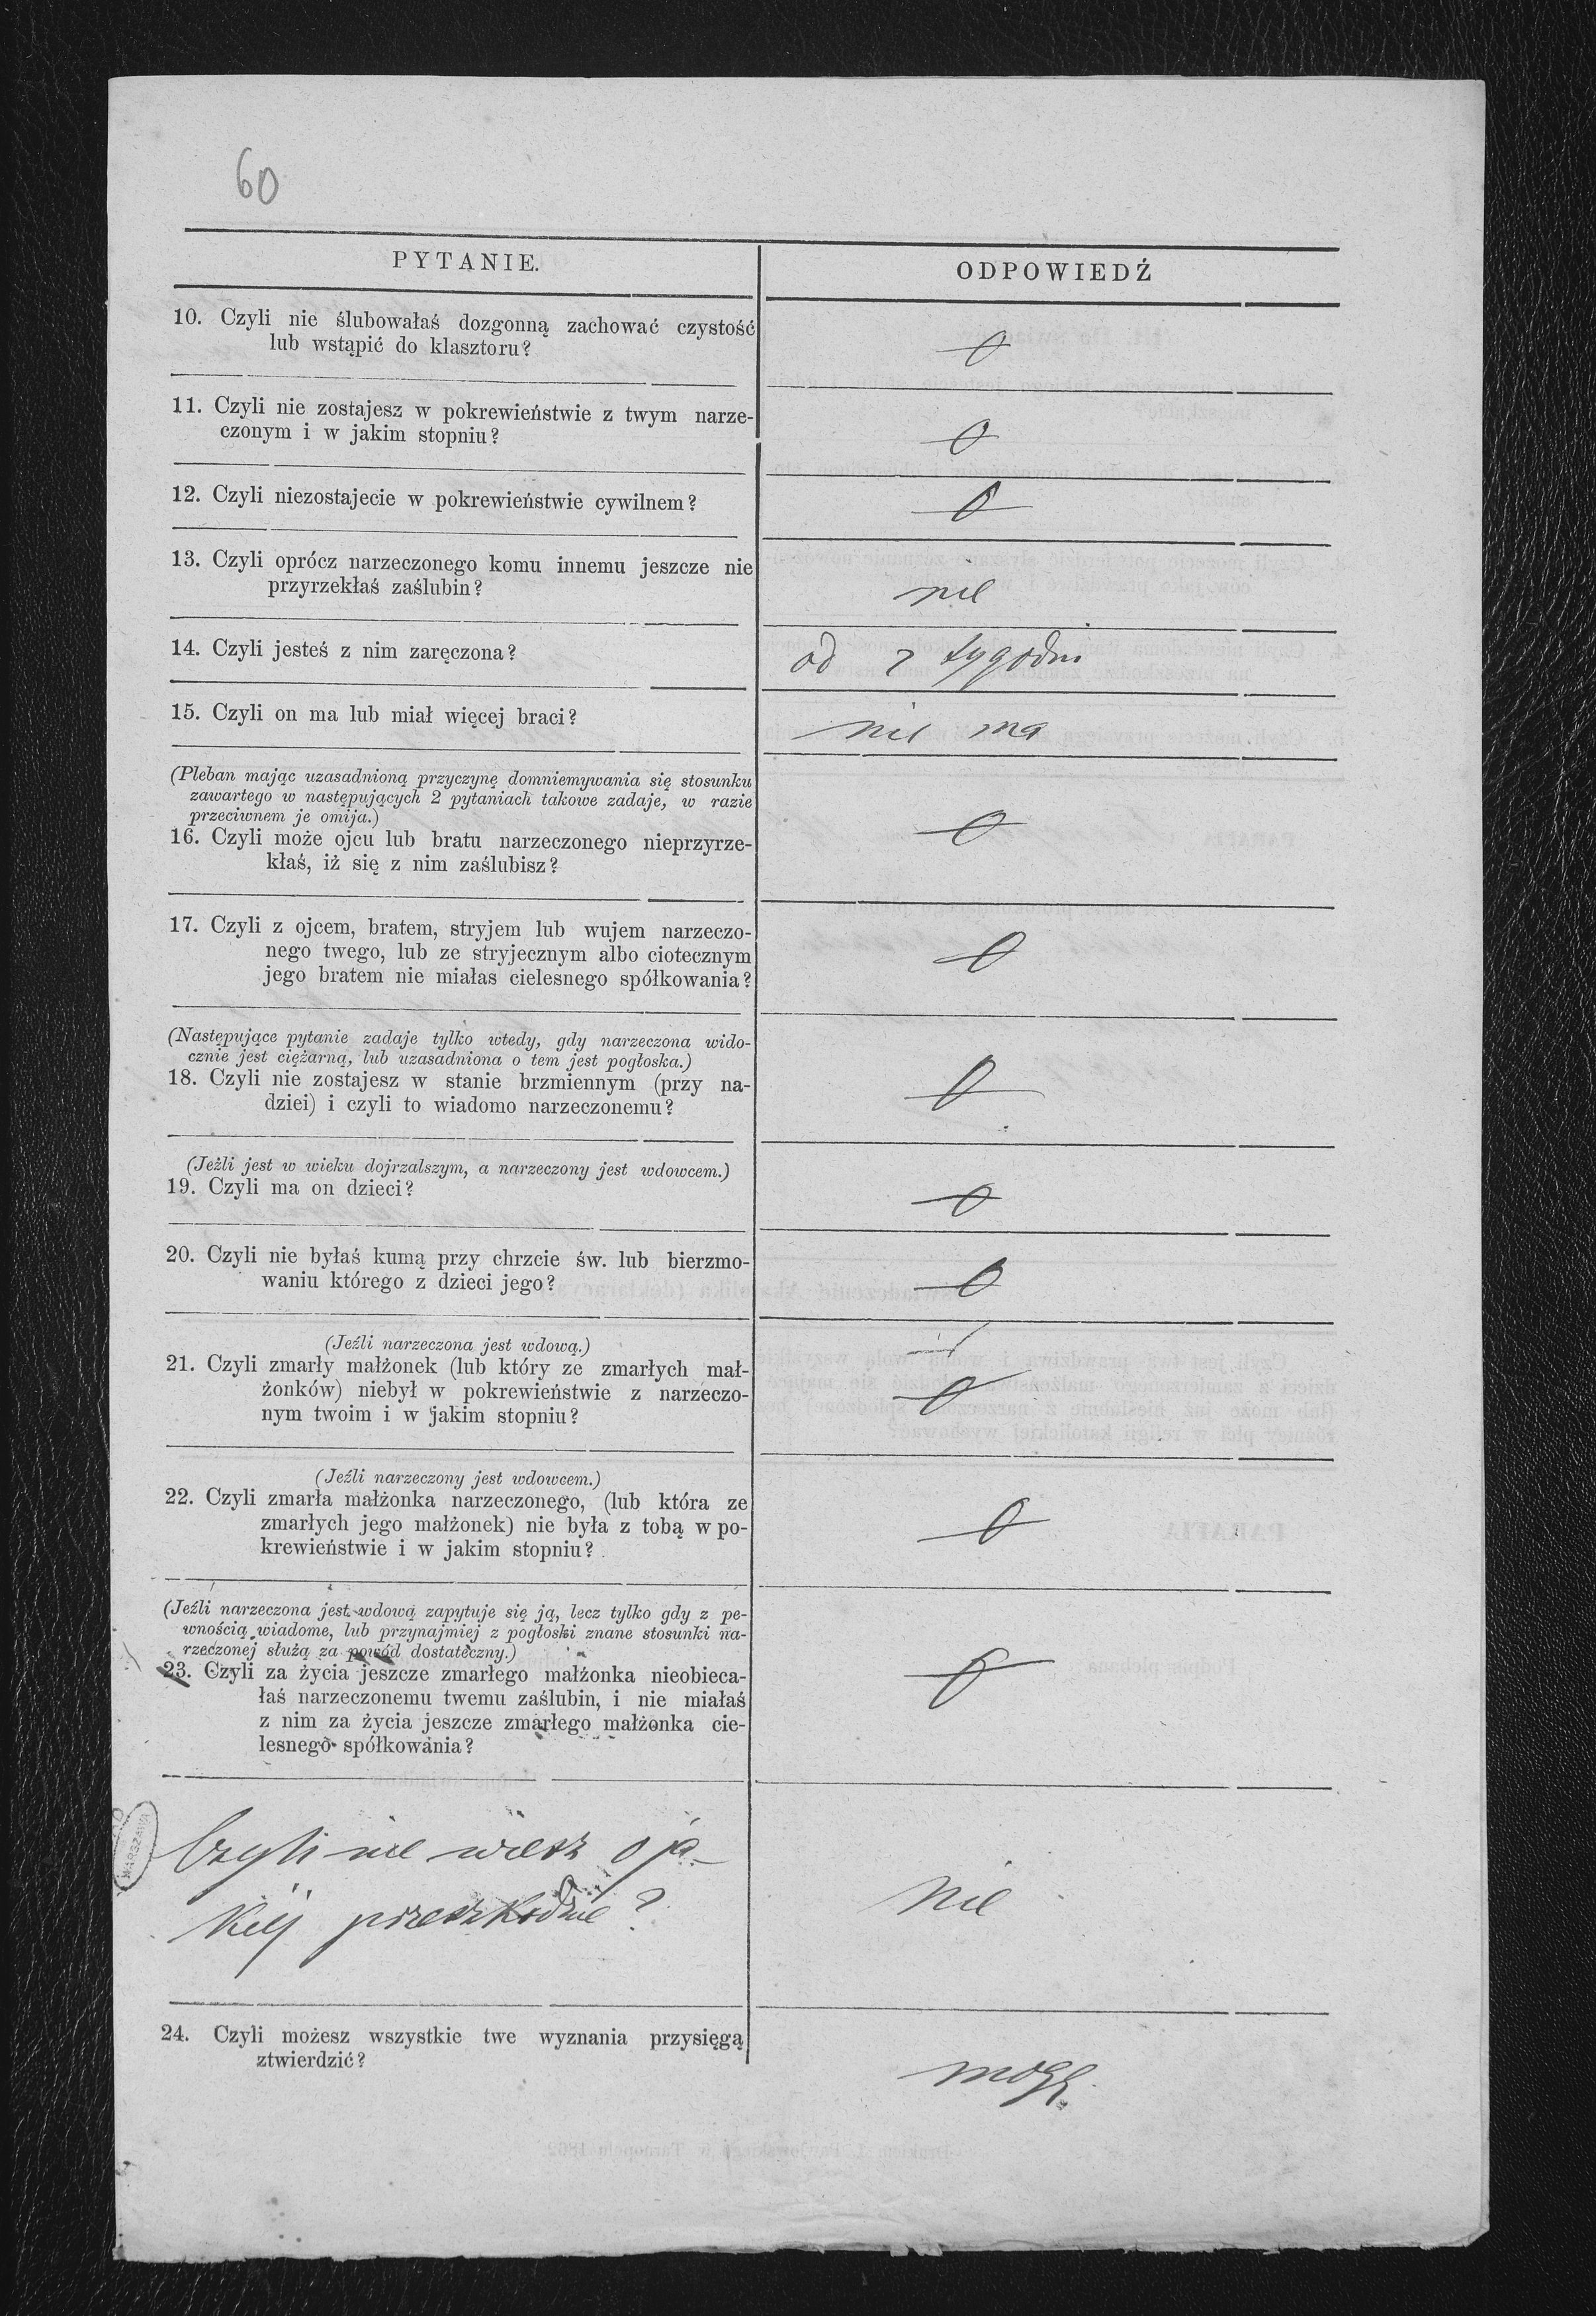 60
PYTANIE.
ODPOWIEDŹ
10. Czyli nie ślubowałaś dozgonną zachować czystość
lub wstąpić do klasztoru?
11. Czyli nie zostajesz w pokrewieństwie z twym narze-
czonym i w jakim stopniu?
12. Czyli niezostajecie w pokrewieństwie cywilnem?
13. Czyli oprócz narzeczonego komu innemu jeszcze nie
przyrzekłaś zaślubin?
nie
14. Czyli jesteś z nim zaręczona?
od 2 tygodni
15. Czyli on ma lub miał więcej braci?
nie ma
(Pleban mając uzasadnioną przyczynę domniemywania się stosunku
zawartego w następujących 2 pytaniach takowe zadaje, w razie
przeciwnem je omija.)
16. Czyli może ojcu lub bratu narzeczonego nieprzyrze-
kłaś, iż się z nim zaślubisz?
17. Czyli z ojcem, bratem, stryjem lub wujem narzeczo-
nego twego, lub ze stryjecznym albo ciotecznym
jego bratem nie miałas cielesnego spółkowania?
(Następujące pytanie zadaje tylko wtedy, gdy narzeczona wido-
cznie jest ciężarną, lub uzasadniona o tem jest pogłoska.)
18. Czyli nie zostajesz w stanie brzmiennym (przy na-
dziei) i czyli to wiadomo narzeczonemu?
(Jeżli jest w wieku dojrzalszym, a narzeczony jest wdowcem.)
19. Czyli ma on dzieci?
20. Czyli nie byłaś kumą przy chrzcie św. lub bierzmo-
waniu którego z dzieci jego?
(Jeźli narzeczona jest wdową.)
21. Czyli zmarły małżonek (lub który ze zmarłych mał-
żonków) niebył w pokrewieństwie z narzeczo-
nym twoim i w jakim stopniu?
(Jeźli narzeczony jest wdowcem.)
22. Czyli zmarła małżonka narzeczonego, (lub która ze
zmarłych jego małżonek) nie była z tobą w po-
krewieństwie i w jakim stopniu?
(Jeźli narzeczona jest wdową zapytuje się ją, lecz tylko gdy z pe-
wnością wiadome, lub przynajmiej z pogłoski znane stosunki na-
rzeczonej służą za powód dostateczny.)
23. Czyli za życia jeszcze zmarłego małżonka nieobieca-
łaś narzeczonemu twemu zaślubin, i nie miałaś
z nim za życia jeszcze zmarłego małżonka cie-
lesnego spółkowania?
Czyli nie wiesz o ja-
kiej przeszkodzie?
nie
WARSZAWA
24. Czyli możesz wszystkie twe wyznania przysięgą
ztwierdzić?
mogę.